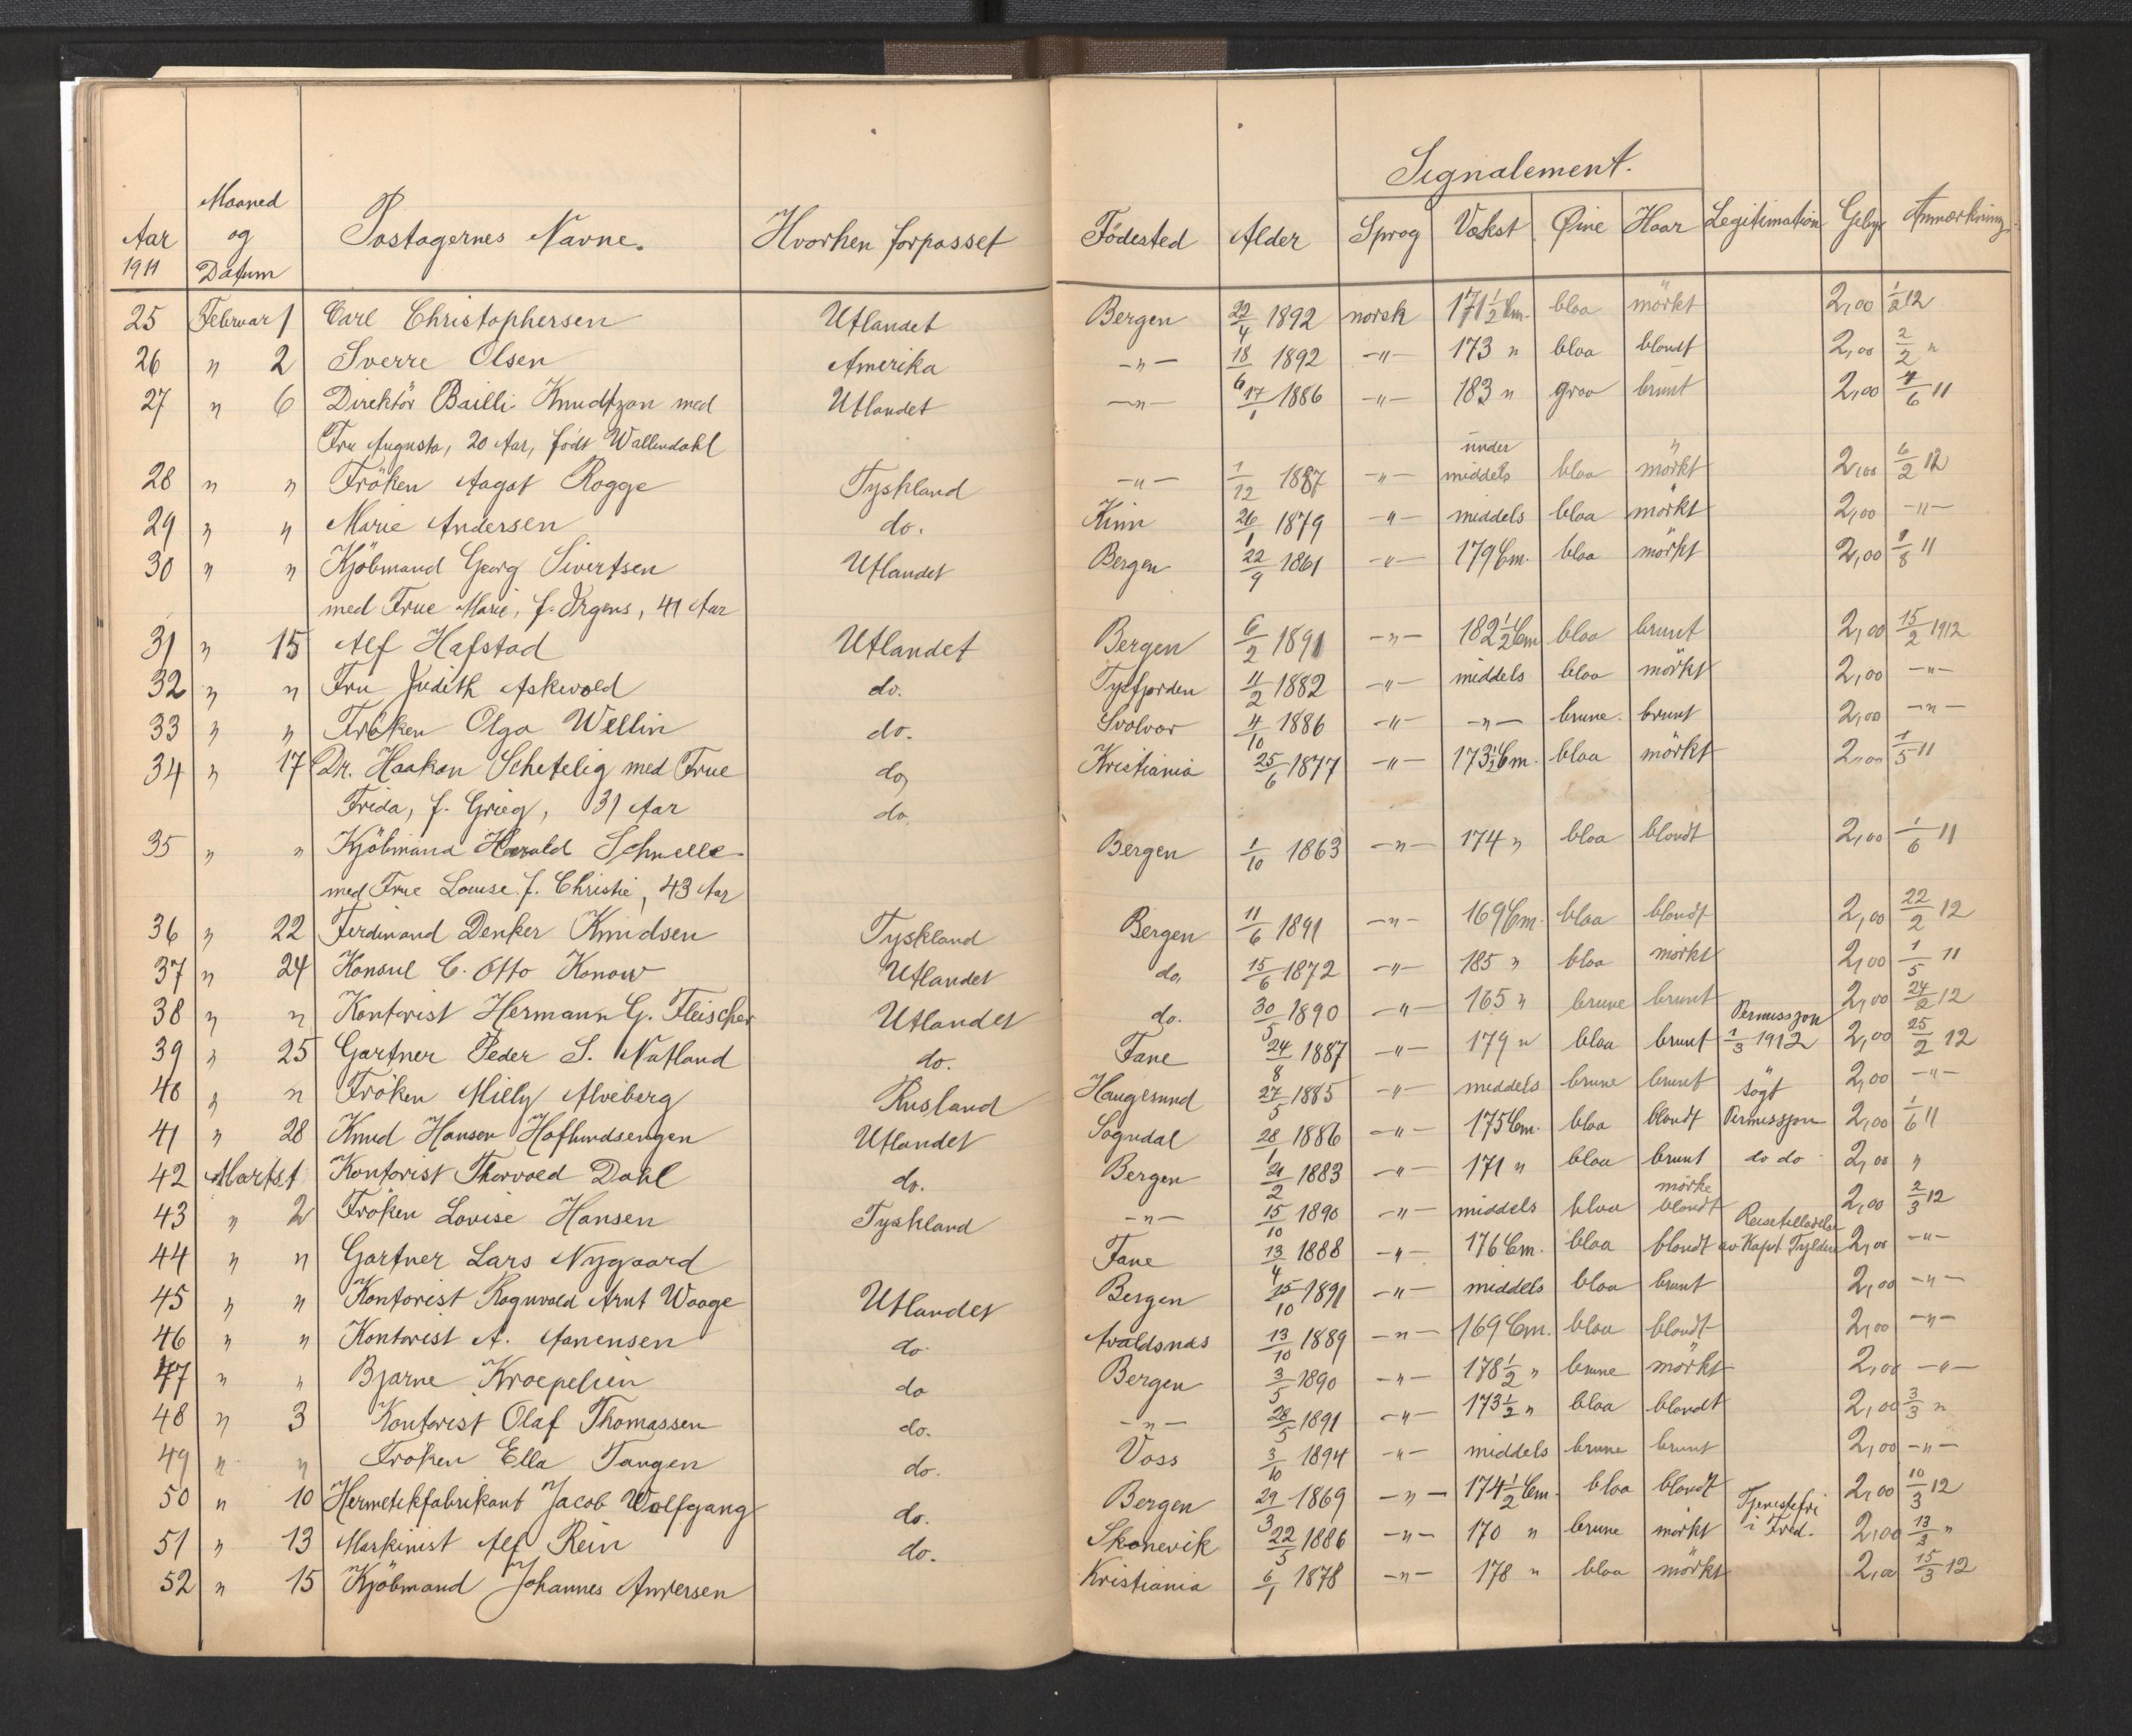 Signalement.
Aar 1911 Maaned og Datum Pastagernes Navne. Hvorhen forpasset Födested Alder Sprog Vækst Øine Haar Legitimation Gebyr Anmærkning
25 Februar 1 Carl Christophersen Utlandet Bergen 22/4 1892 norsk 171 1/2 Cm. blaa mörkt 2,00 1/2 12
26 " 2 Sverre Olsen Amerika -"- 18/6 1892 -"- 173 " blaa blondt 2,00 2/2 "
27 " 6 Direktör Bailli Knudtzon med Utlandet -"- 17/1 1886 -"- 183 " graa brunt 2,00 7/6 11
Fru Augusta, 20 Aar, födt Wallendahl
28 " " Fröken Aagot Rogge Tyskland -"- 1/12 1887 -"- under middels blaa mörkt 2,00 6/2 12
29 " " Marie Andersen do. Kinn 26/1 1879 -"- middels blaa mörkt 2,00 -"-
30 " " Kjöbmand Georg Sivertsen Utlandet Bergen 22/9 1861 -"- 179 Cm. blaa mörkt 2,00 /8 11
med Frue Marie, f. Irgens, 41 Aar
31 " 15 Alf Hafstad Utlandet Bergen 6/2 1891 -"- 182 1/2 Cm blaa brunt 2,00 15/2 1912
32 " " Fru Judith Askvold do. Tysfjorden 11/2 1882 -"- middels blaa mörkt 2,00 -"-
33 " " Fröken Olga Wellin do. Svolvær 4/10 1886 -"- -"- brune brunt 2,00 -"-
34 " 17 Dr. Haakon Schetelig med Frue do, Kristiania 25/6 1877 -"- 173 1/2 Cm. blaa mörkt 2,00 1/5 11
Frida, f. Grieg, 31 Aar do.
35 " " Kjöbmand Harald Schnelle Bergen 1/10 1863 -"- 174 " blaa blondt 2,00 1/6 11
med Frue Louise f. Christie, 43 Aar
36 " 22 Ferdinand Denker Knudsen Tyskland Bergen 11/6 1891 -"- 169 Cm. blaa blondt 2,00 22/2 12
37 " 24 Konsul C. Otto Konow Utlandet do, 15/6 1872 -"- 185 " blaa mörkt 2,00 1/5 11
38 " " Kontorist Hermann G. Fleischer Utlandet do. 30/5 1890 -"- 165 " brune brunt 2,00 24/2 12
39 " 25 Gartner Peder S. Natland do. Fane 24/8 1887 -"- 179 " blaa brunt Permissjon 1/3 1912 2,00 25/2 12
40 " " Fröken Milly Alveberg Rusland Haugesund 27/5 1885 -"- middels brune brunt 2,00 -"-
41 " 28 Knud Hansen Haflundsengen Utlandet Sogndal 28/1 1886 -"- 175 Cm. blaa blondt Sögt Permissjon 2,00 1/6 11
42 Marts 1 Kontorist Thorvald Dahl do. Bergen 21/2 1883 -"- 171 " blaa brunt do do 2,00 "
43 " 2 Fröken Lovise Hansen Tyskland -"- 15/10 1890 -"- middels blaa mörke blondt 2,00 2/3 12
44 " " Gartner Lars Nygaard Fane 13/4 1888 -"- 176 Cm. blaa blondt Reisetilladelse av Kapt. Tylden 2,00 -"-
45 " " Kontorist Ragnvald Arnt Waage Utlandet Bergen 25/10 1891 -"- middels blaa brunt 2,00 -"-
46 " " Kontorist A. Aanensen do. Avaldsnæs 13/10 1889 -"- 169 Cm. blaa blondt 2,00 -"-
47 " " Bjarne Kroepelien do Bergen 3/5 1890 -"- 178 1/2 " brune mörkt 2,00 -"-
48 " 3 Kontorist Olaf Thomassen do. -"- 28/5 1891 -"- 173 1/2 " blaa blondt 2,00 3/3 "
49 " " Fröken Ella Tangen do. Voss 3/10 1894 -"- middels brune brunt 2,00 -"-
50 " 10 Hermetikfabrikant Jacob Wolfgang do. Bergen 29/3 1869 -"- 174 1/2 Cm. blaa blondt 2,00 10/3 12
51 " 13 Maskinist Alf Rein do. Skonevik 22/5 1886 -"- 170 " brune mörkt Tjenestefri i Fred. 2,00 13/3 "
52 " 15 Kjöbmand Johannes Andersen Kristiania 6/1 1878 -"- 178 " blaa mörkt 2,00 15/3 12